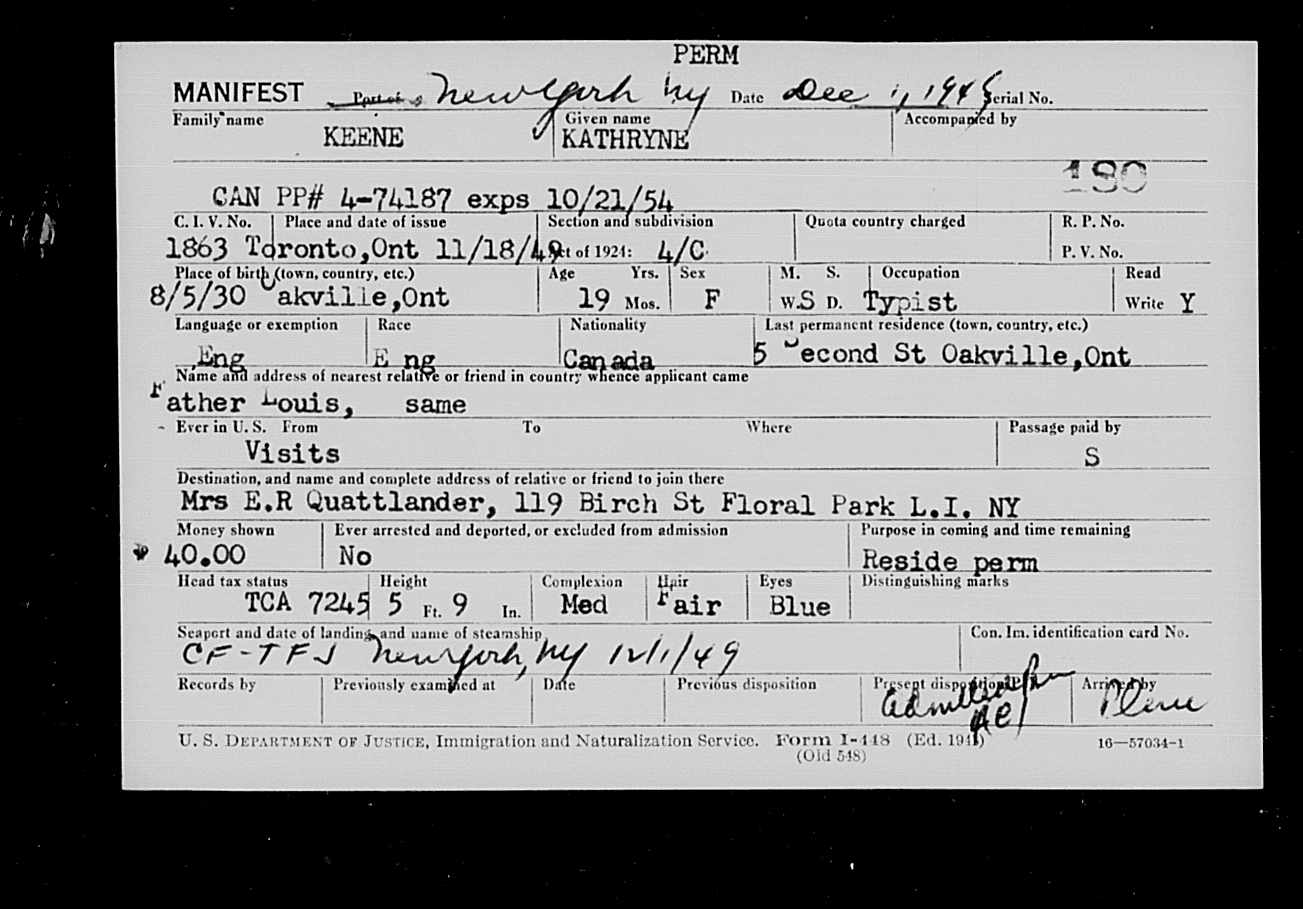 PERM
MANIFEST Port of New York Ny Date Dec 1, 1949 Serial No.
Family name Given name Accompanied by
KEENE KATHRYNE
190
CAN PP# 4-74187 exps 10/21/54
C. I. V. No. Place and date of issue Section and subdivision Quota country charged R. P. No.
1863 Toronto,Ont 11/18/49 Act of 1924: 4/C P. V. No.
Place of birth (town, country, etc.) Age Yrs. Sex M. S. Occupation Read
8/5/30 Oakville,Ont 19 Mos. F W. S D. Typist Write Y
Language or exemption Race Nationality Last permanent residence (town, country, etc.)
Eng E ng Canada 5 Second St Oakville,Ont
Name and address of nearest relative or friend in country whence applicant came
Father Louis, same
Ever in U. S. From To Where Passage paid by
Visits S
Destination, and name and complete address of relative or friend to join there
Mrs E.R Quattlander, 119 Birch St Floral Park L.I. NY
Money shown Ever arrested and deported, or excluded from admission Purpose in coming and time remaining
40.00 No Reside perm
Head tax status Height Complexion Hair Eyes Distinguishing marks
TCA 7245 5 Ft. 9 In. Med Fair Blue
Seaport and date of landing, and name of steamship Con. Im. identification card No.
CF-TFJ New York, Ny 12/1/49
Records by Previously examined at Date Previous disposition Present disposition Arrived by
admitted Plane
U. S. DEPARTMENT OF JUSTICE, Immigration and Naturalization Service. Form I-448 (Ed. 194
(Old 548)
16—57034-1